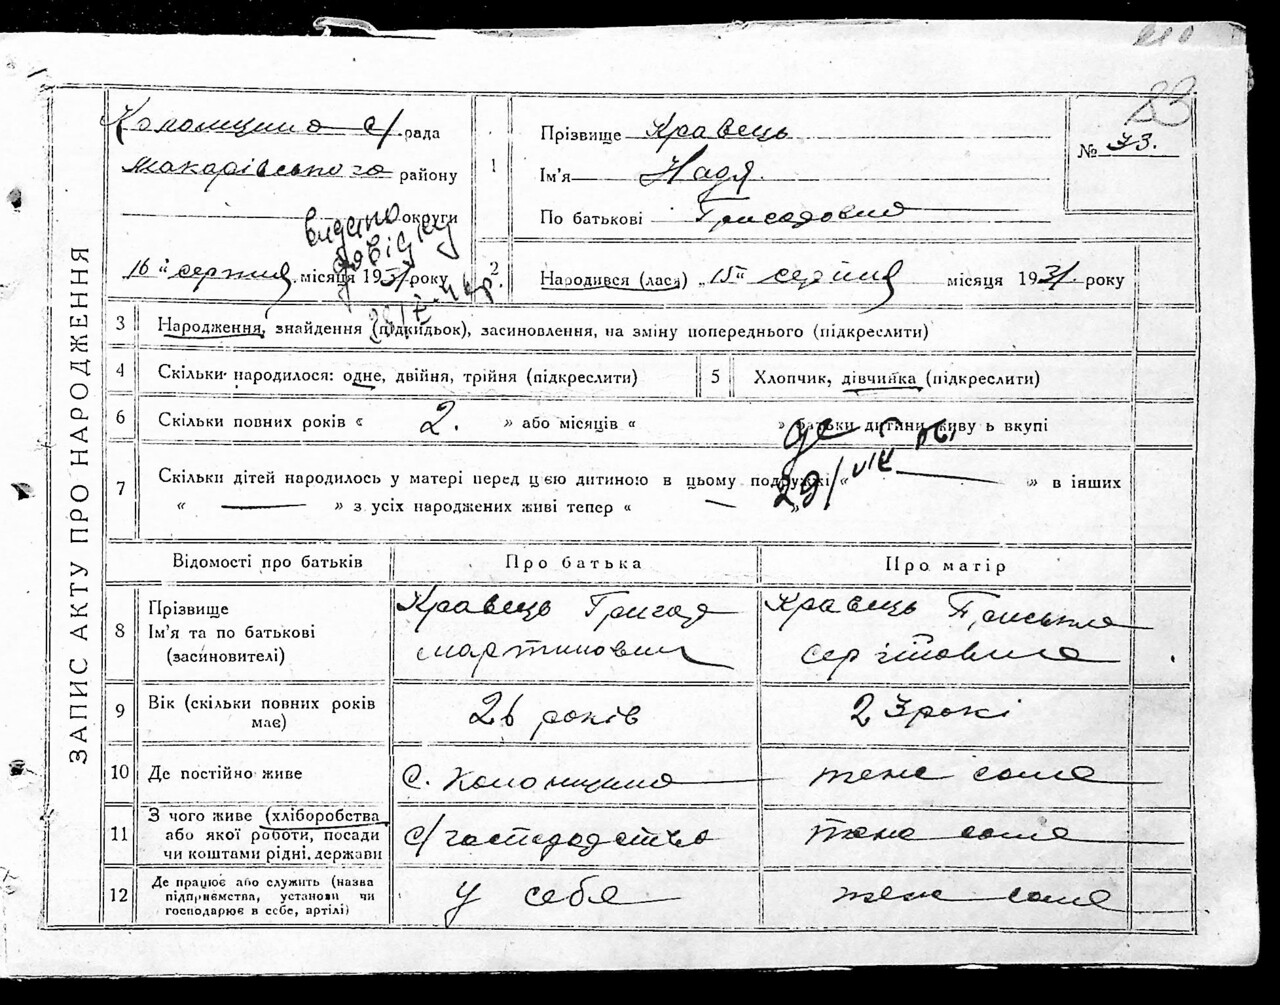 23
ЗАПИС АКТУ ПРО НАРОДЖЕННЯ
Колонщина с/рада
Макарівського району
округи
16" серпня місяця 1931 року
видано
довідку
1 Прізвище Кравець
Ім'я Надя
По батькові Григоровна
№ 73.
2. Народився (лася) „15" серпня місяця 1931 року
3 Народження, знайдення (підкидьок), засиновлення, на зміну попереднього (підкреслити)
4 Скільки народилося: одне, двійня, трійня (підкреслити)
5 Хлопчик, дівчинка (підкреслити)
6 Скільки повних років « 2. » або місяців « » батьки дитини живуть вкупі
7 Скільки дітей народилось у матері перед цією дитиною в цьому подружжі « — » в інших
« — » з усіх народжених живі тепер « — »
29/VIII
Відомості про батьків Про батька Про матір
8 Прізвище
Ім'я та по батькові
(засиновителі)
Кравець Григор
Мартинович
КравецьПриська
Сергіївна
9 Вік (скільки повних років
має)
26 років
23 рокі
10 Де постійно живе
с. Колонщина
теж саме
11 З чого живе (хліборобства
або якої роботи, посади
чи коштами рідні, держави
с/господарство
теж саме
12 Де працює або служить (назва
підприємства, установи чи
господарює в себе, артілі)
у себе
теж саме